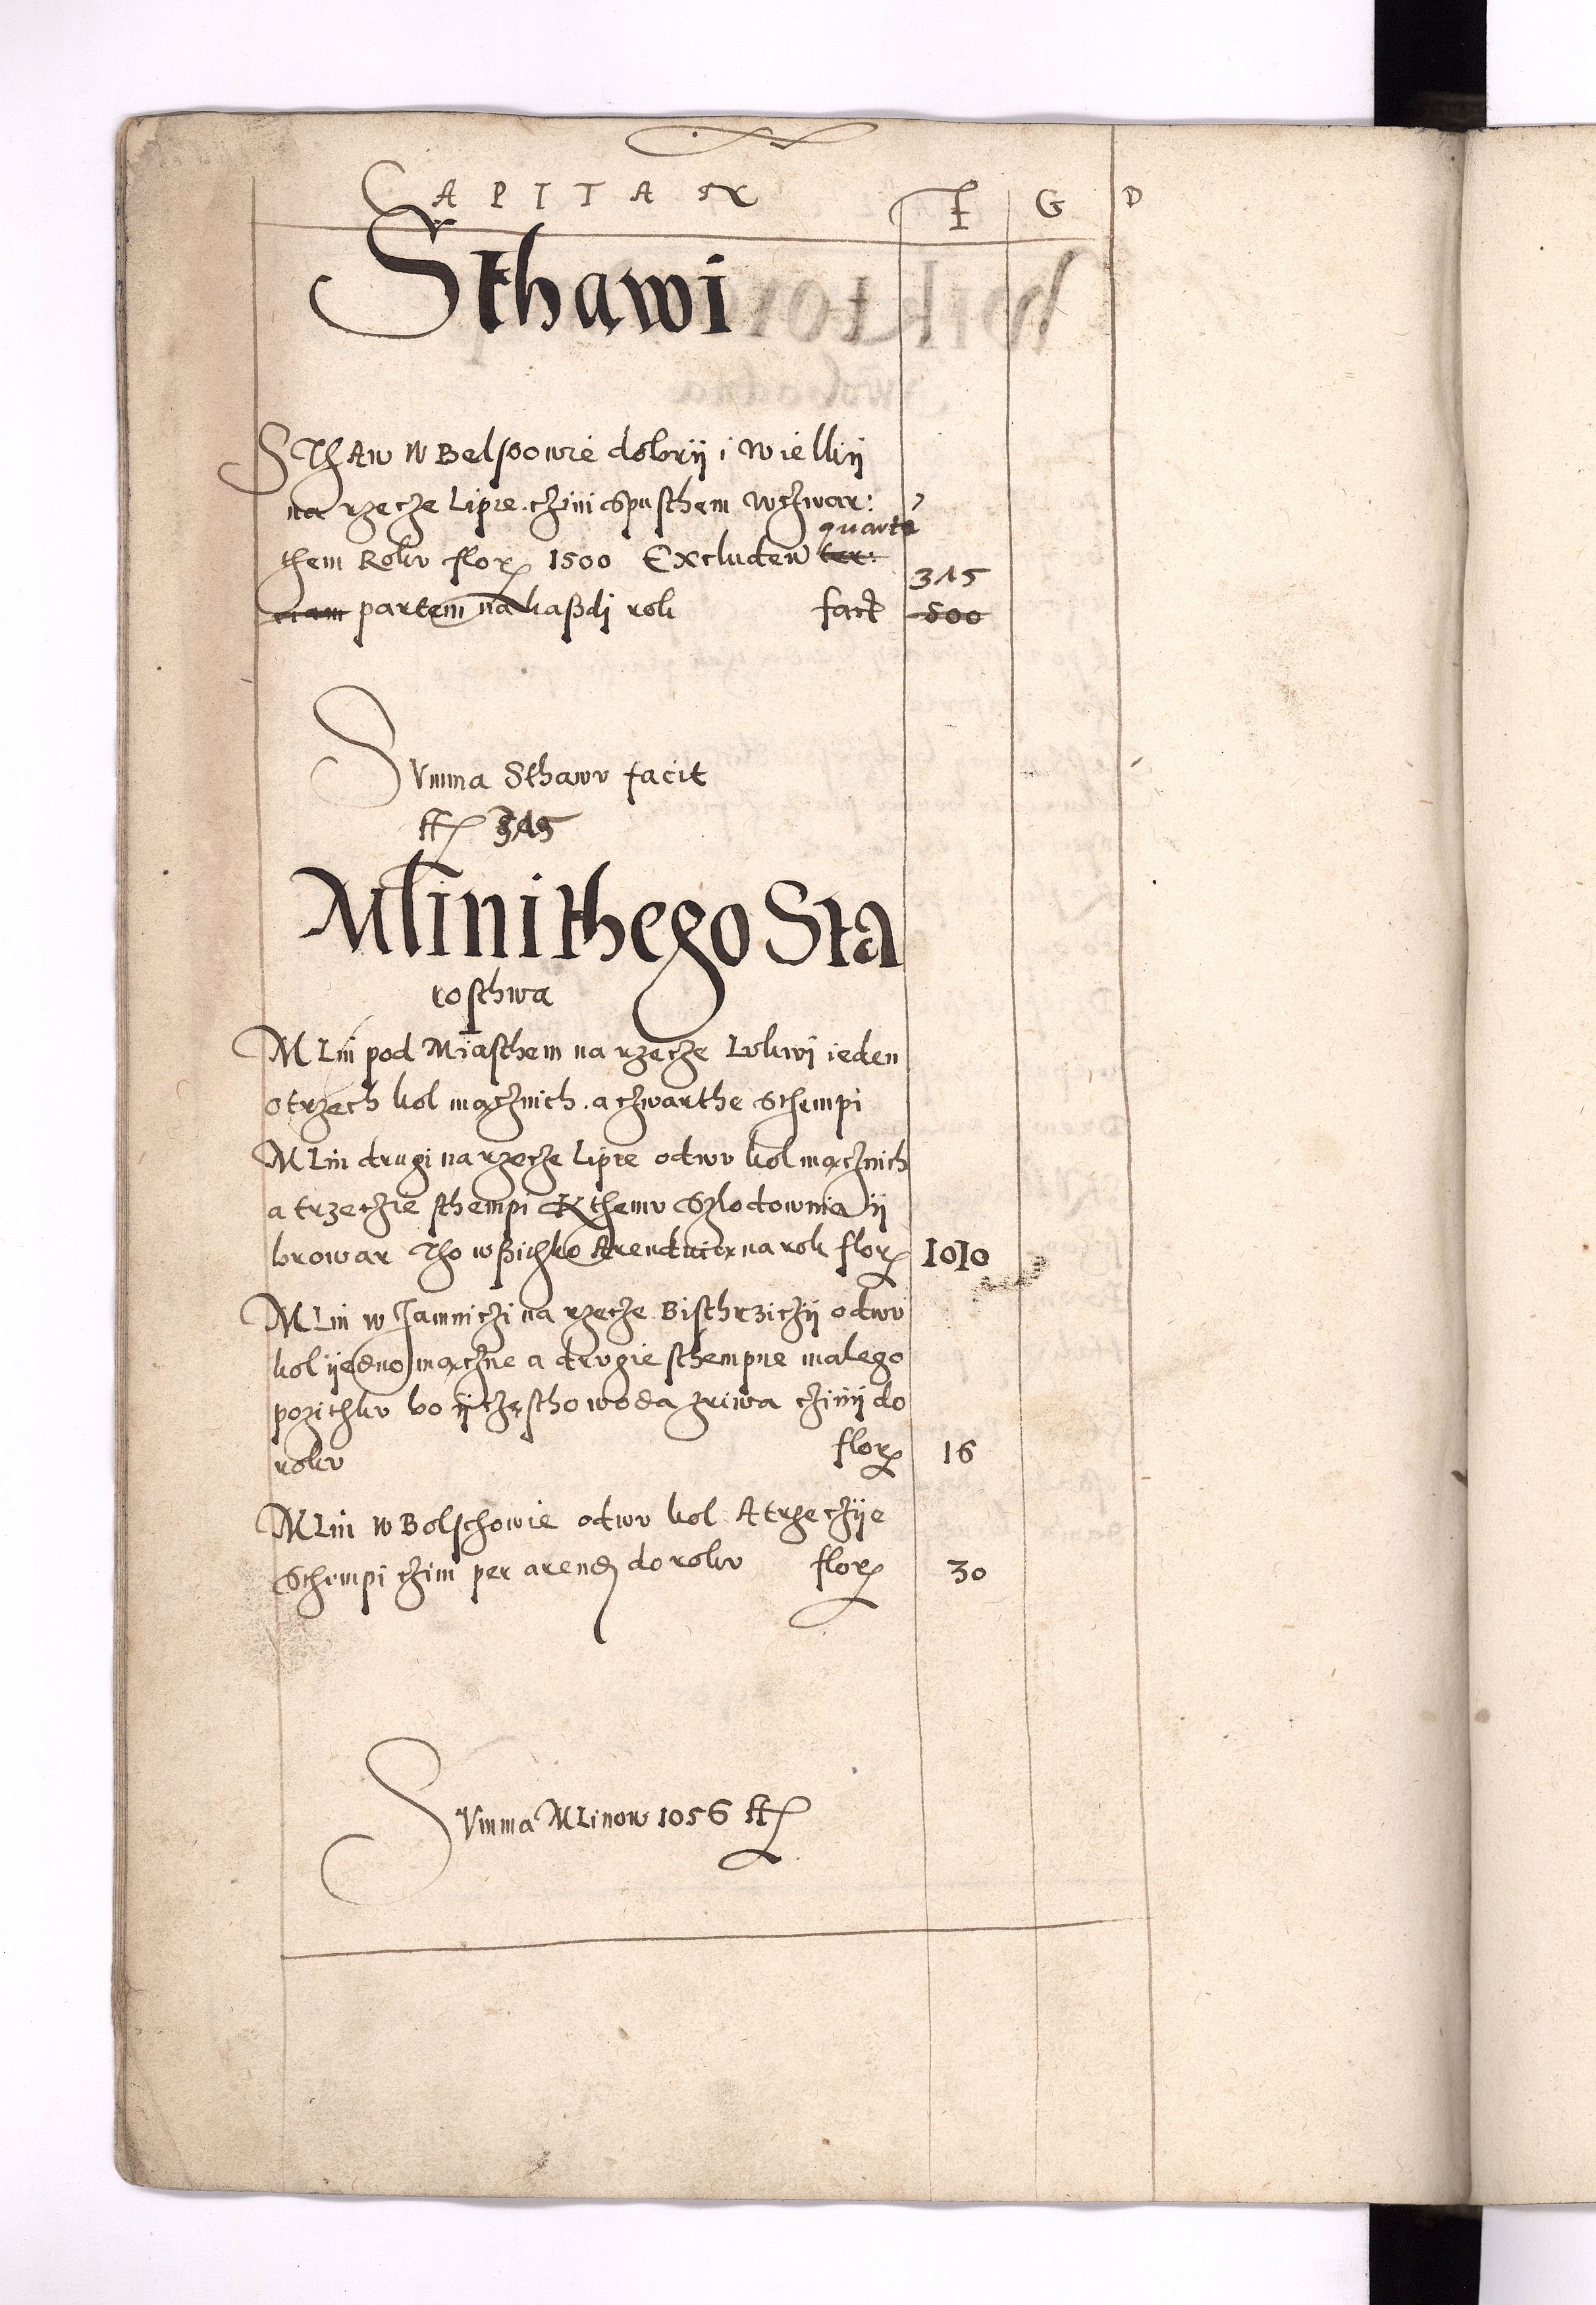 CAPITA F G D
Sthawi
SThAw W Belsoowie dobrÿ i Wielkÿ
na rzecze Lipie czini Spusthem Wczwar:
quartā
them Rokv flor 1500 Excluden ter:
315
ciam partem na kaßdj rok facit 500
SVmma Sthawv facit
fl 315
Mlini thego Sta
rosthwa
MLin pod Miasthem na rzecze Lukwi ieden
o trzech kol mącznich. a czwarthe Sthempi
MLin drugi na rzecze Lipie o dwv kol mącznich
a trzeczie sthempi K themv Szlodownia ÿ
browar Tho wßithko Arenduią na rok flor 1010
MLin w Jamniczi na rzecze Bisthrziczÿ o dwv
kol ÿedno mączne a drvgie sthempne malego
pozithkv bo ÿ czestho woda zriwa czinÿ do
rokv flor 16
MLin W Bolschowie o dwv kol A trzeczÿe
Sthempi czini per arend do rokv flor 30
SVmma MLinow 1056 fl